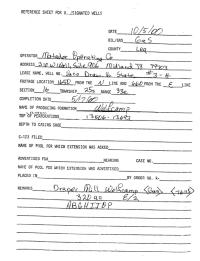 REFERENCE SHEET FOR U__SIGNATED WELLS
DATE 10/5/00
OIL/GAS Gas
COUNTY Lea
OPERATOR Matador Operating Co
ADDRESS 310 W Wall, Suite 906 Midland TX 79701
LEASE NAME, WELL NO. Draw State #3-H
FOOTAGE LOCATION 1650 FROM THE N LINE AND 660 FROM THE E LINE
SECTION 16 TOWNSHIP 25s RANGE 33e
COMPLETION DATE
NAME OF PRODUCING FORMATION Wolfcamp
TOP OF PERFORATIONS
DEPTH TO CASING SHOE
C-123 FILED
NAME OF POOL FOR WHICH EXTENSION WAS ASKED
ADVERTISED FOR HEARING CASE NO.
NAME OF POOL FOR WHICH EXTENSION WAS ADVERTISED
PLACED IN BY ORDER NO. R-
REMARKS Draper Mill Wolfcamp (Gas)
320 ac E/2
ABGHIJOP